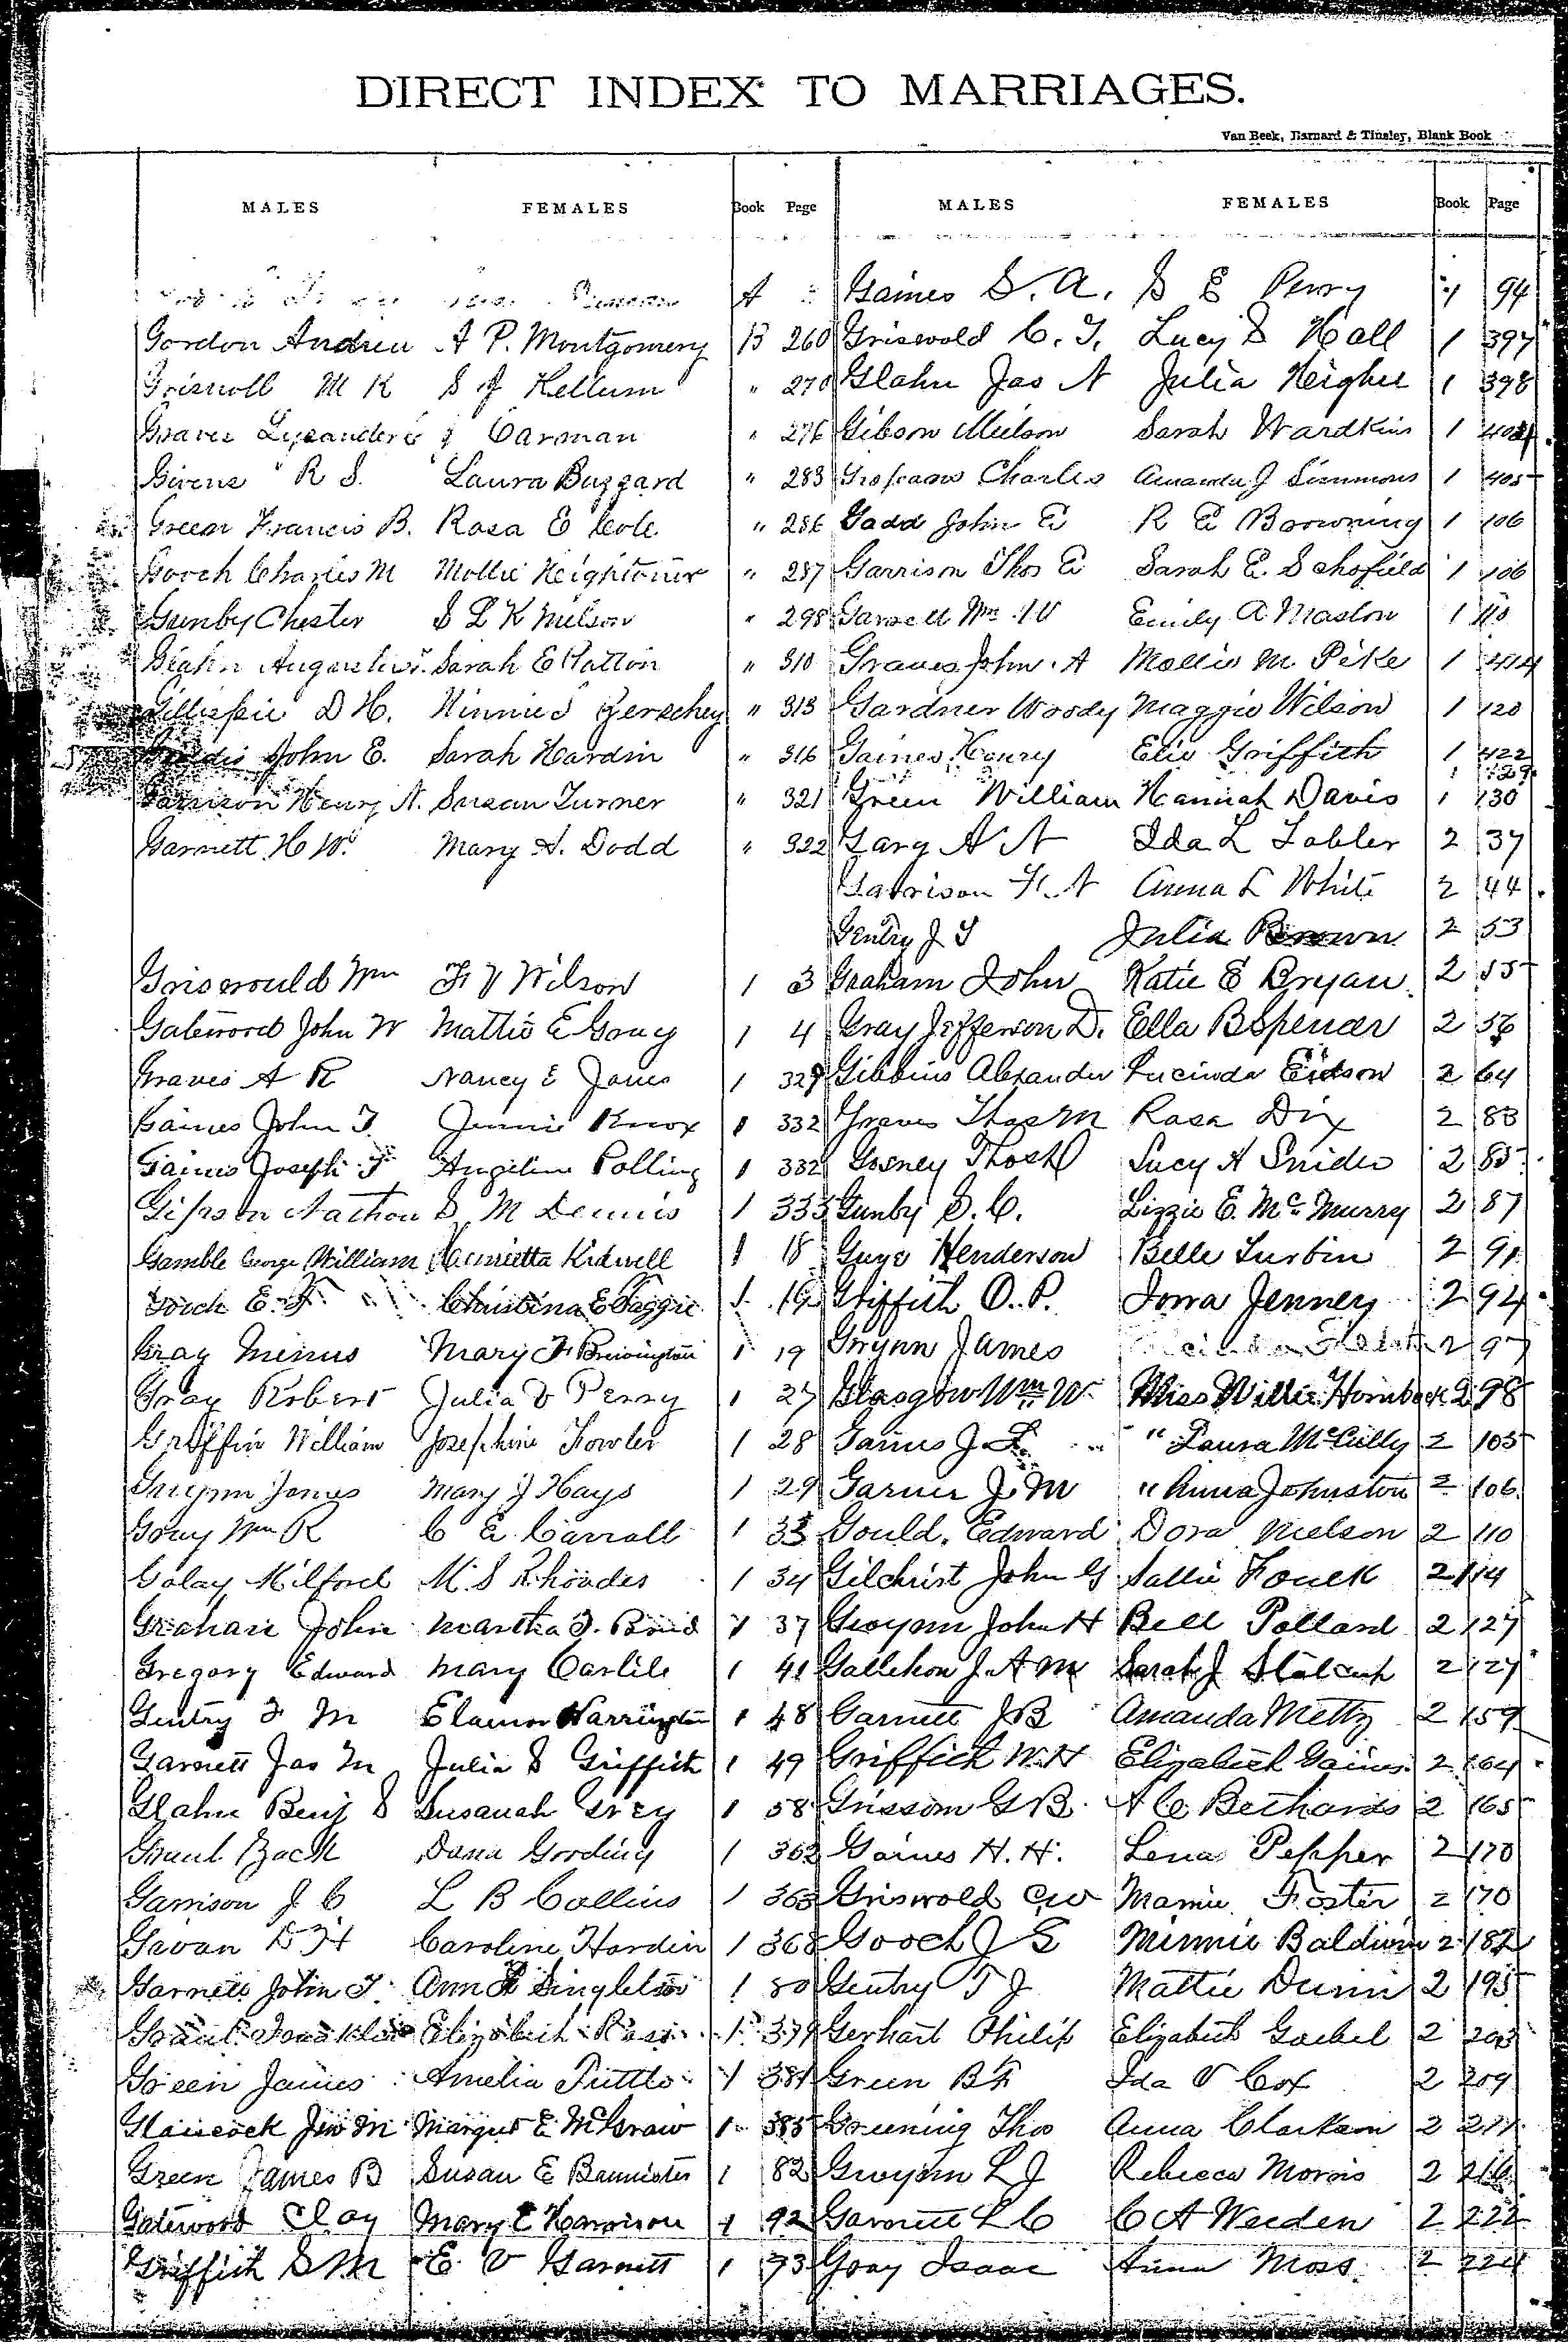 DIRECT INDEX TO MARRIAGES.
Van Beek, Barnard & Tinsley, Blank Book
MALES FEMALES Book Page
A
Gordon Andrew A P. Montgomery B 260
M K S J Kellum " 270
Graves Lysander Carman " 276
Givens R S. Laura Buzzard " 283
Green Francis B. Rosa E Cole " 286
Gooch Charles M Mollie Heightower " 287
Gunby Chester S L K Nielson " 298
Sarah E Hatton " 310
Gillispie D H. " 313
John E. Sarah Hardin " 316
Garrison Henry N. Susan Turner " 321
Garnett H W. Mary A. Dodd " 322
Griswould Wm F V Wilson 1 3
Gatewood John W Mattie E Gray 1 4
Graves A R Nancy E Jones 1 329
Gaines John T Jennie Knox 1 332
Gaines Joseph F Angeline Polling 1 332
Nathan S M Dennis 1 333
Gamble George William Henrietta Kidwell 1 18
Christina E 1 19
Gray Minus Mary F Brevington 1 19
Gray Robert Julia V Perry 1 27
Griffin William Josephine Fowler 1 28
James Mary J Hays 1 29
Gray Wm R C E Carroll 1 33
Golay Milford M S Rhoades 1 34
Graham John Martha J. 1 37
Gregory Edward Mary Carlile 1 41
Gentry F M Harrington 1 48
Garnett Jas M Julia S Griffith 1 49
Glahn Benj S Susanah Grey 1 58
Zack Dana Gooding 1 362
Garrison J C L B Collins 1 363
Gavan D H Caroline Hardin 1 368
Garnett John T. Ann Singleton 1 80
Elizabeth 1 379
Green James Amelia Tuttle 1 381
Glasscock Jno M E McGraw 1 385
Green James B Susan E Bannister 1 82
Gatewood Clay Mary E Harrison 1 92
Griffith S M E V Garnett 1 93
MALES FEMALES Book Page
Gaines S. A. S E Perry 1 94
Griswold C. T. Lucy S Hall 1 397
Glahn Jas N Julia Keighee 1 398
Gibson Sarah Wardkins 1
Charles Amanda J Simmons 1 405
Gadd John E R E Browning 1 106
Garrison Thos E Sarah E. Schofield 1 106
Wm Emily A Maston 1 110
Graves John A Mollie M Pike 1 414
Gardner Woody Maggie Wilson 1 120
Gaines Henry Griffith 1 422
Green William Hannah Davis 1 130
Gary A N Ida L Tobler 2 37
Garrison F. N Anna L White 2 44
Gentry J T Julia Brown 2 53
Graham John Katie E Bryan 2 55
Gray Jefferson D. Ella B Spencer 2 56
Gibbins Alexander Lucinda Eidson 2 64
Graves Thos M Rosa Dix 2 83
Gosney Thos H Lucy A Snider 2 85
Gunby S. C. Lizzie E. McMurry 2 87
Guye Henderson Belle Turbin 2 91
Griffith O. P. Iowa Jenney 2 94
Gwynn James 2 97
Glasgow Wm W Miss Willie Hornback 2 98
J. L. " Laura McCully 2 105
Garner J. M " Anna Johnston 2 106
Gould, Edward Dora Nielson 2 110
Gilchrist John G Sallie Fouck 2 114
Gwynn John H Bell Pollard 2 127
Gallehon J. A M Sarah J Stalcup 2 127
Garnett J B Amanda Metty 2 159
Griffith W. H Elizabeth Gaines 2 164
Grissom G B A C Bethards 2 165
Gaines H. H. Lena Pepper 2 170
Griswold C W Mamie Foster 2 170
Gooch J E Minnie Baldwin 2 182
Gentry T J Mattie Dunn 2 195
Gerhart Philip Elizabeth Goebel 2 203
Green B F Ida V Cox 2 209
Greening Thos Anna Clarkson 2 211
Gwynn L J Rebecca Morris 2 216
Garnett L C C A Weeden 2 222
Gray Isaac Anna Moss 2 224